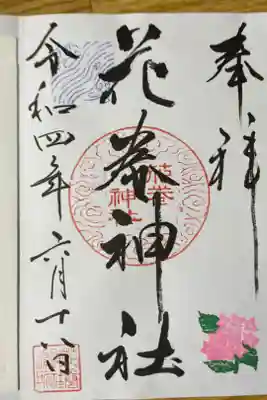 奉拝
花巻神社
令和四年六月十八日
花巻
神社